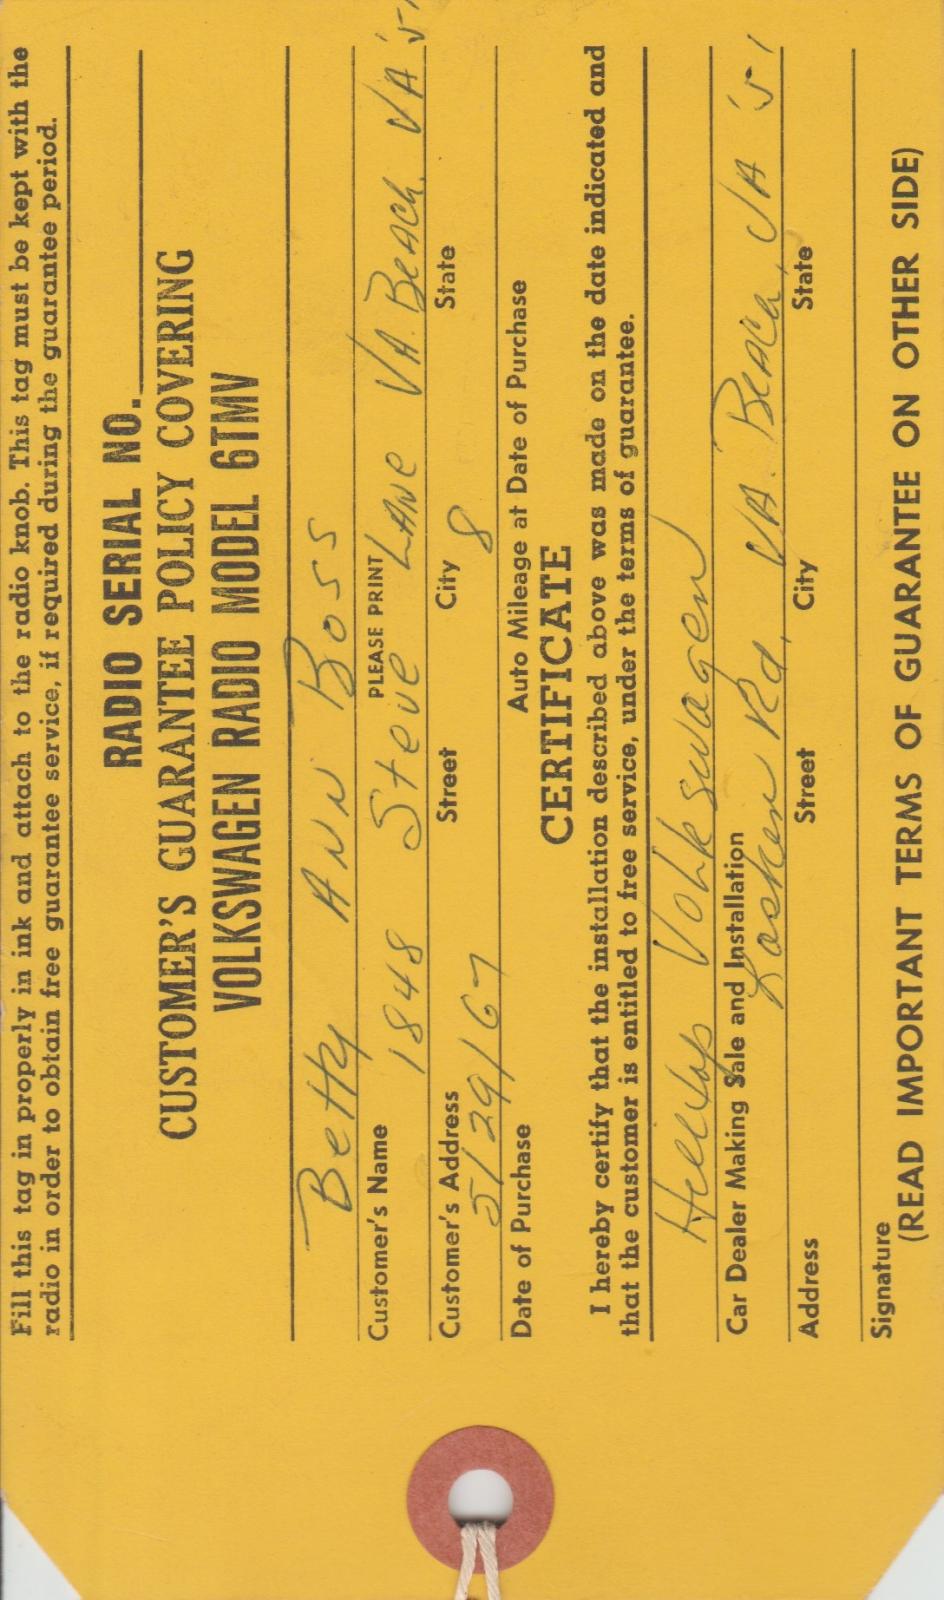 Fill this tag in properly in ink and attach to the radio knob. This tag must be kept with the
radio in order to obtain free guarantee service, if required during the guarantee period.
RADIO SERIAL NO.
CUSTOMER'S GUARANTEE POLICY COVERING
VOLKSWAGEN RADIO MODEL 6TMV
Betty ANN Boss
Customer's Name PLEASE PRINT
1848 Steve LANe VA. BeACh. VA
Customer's Address Street City State
5/29/67 8
Date of Purchase Auto Mileage at Date of Purchase
CERTIFICATE
I hereby certify that the installation described above was made on the date indicated and
that the customer is entitled to free service, under the terms of guarantee.
Volkswagen
Car Dealer Making Sale and Installation
Laskin Rd, VA. BeACh, VA
Address Street City State
Signature
(READ IMPORTANT TERMS OF GUARANTEE ON OTHER SIDE)